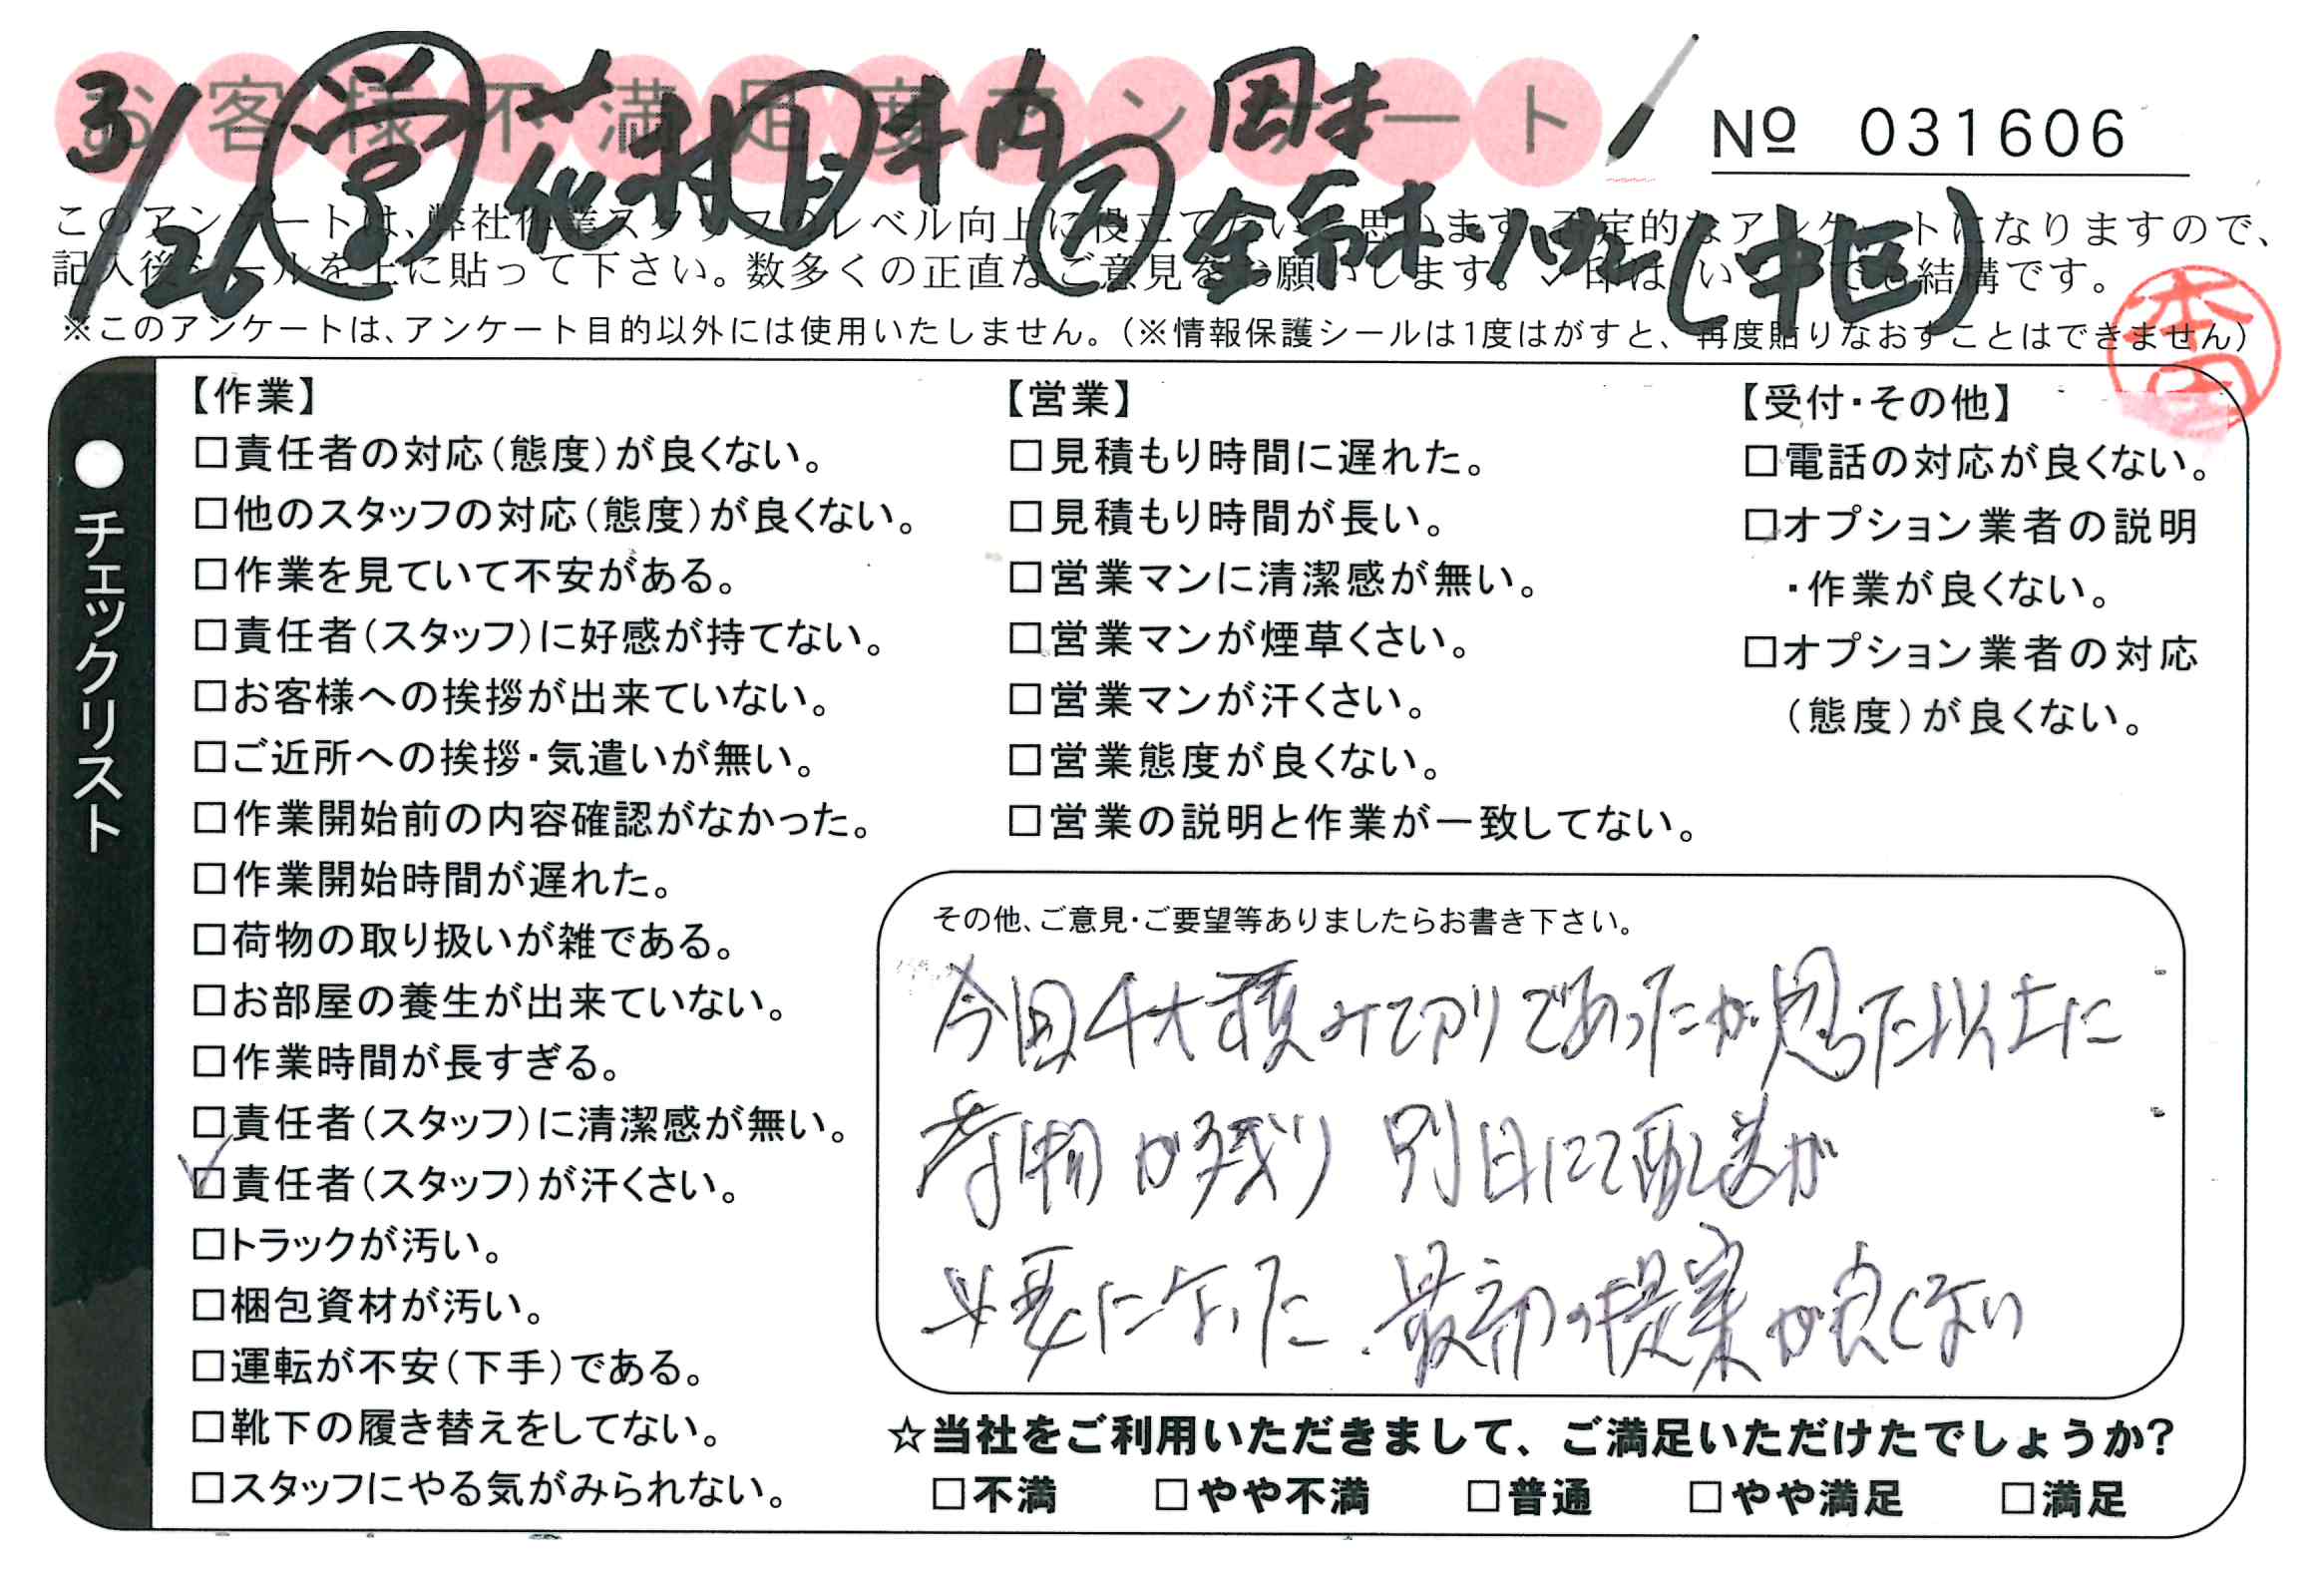 お客様不満足度アンケート
3/26 営 花村 上 岡本
№ 031606
このアンケートは、弊社作業スタッフのレベル向上に役立てたいと思います。否定的なアンケートになりますので、
記入後シールを上に貼って下さい。数多くの正直なご意見をお願いします。✓印はいくつでも結構です。
(中区)
※このアンケートは、アンケート目的以外には使用いたしません。(※情報保護シールは1度はがすと、再度貼りなおすことはできません)
●チェックリスト
【作業】
□責任者の対応(態度)が良くない。
□他のスタッフの対応(態度)が良くない。
□作業を見ていて不安がある。
□責任者(スタッフ)に好感が持てない。
□お客様への挨拶が出来ていない。
□ご近所への挨拶・気遣いが無い。
□作業開始前の内容確認がなかった。
□作業開始時間が遅れた。
□荷物の取り扱いが雑である。
□お部屋の養生が出来ていない。
□作業時間が長すぎる。
□責任者(スタッフ)に清潔感が無い。
☑責任者(スタッフ)が汗くさい。
□トラックが汚い。
□梱包資材が汚い。
□運転が不安(下手)である。
□靴下の履き替えをしてない。
□スタッフにやる気がみられない。
【営業】
□見積もり時間に遅れた。
□見積もり時間が長い。
□営業マンに清潔感が無い。
□営業マンが煙草くさい。
□営業マンが汗くさい。
□営業態度が良くない。
□営業の説明と作業が一致してない。
【受付・その他】
□電話の対応が良くない。
□オプション業者の説明
・作業が良くない。
□オプション業者の対応
(態度)が良くない。
その他、ご意見・ご要望等ありましたらお書き下さい。
今回4t積みて切りであったが思った以上に
荷物が残り 別日にて配送が
必要になった.最初の提案が良くない
☆当社をご利用いただきまして、ご満足いただけたでしょうか?
□不満 □やや不満 □普通 □やや満足 □満足